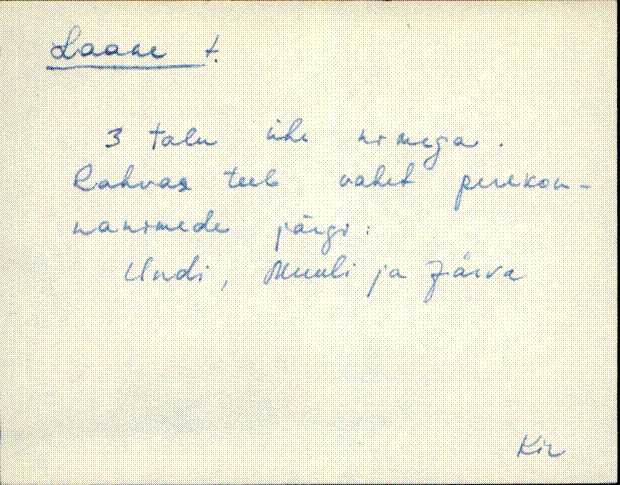 Laane t.
3 talu ühe nimega.
Rahvas teeb vahet perekon-
nanimede järgi:
Undi, Muuli ja Järva
Kir